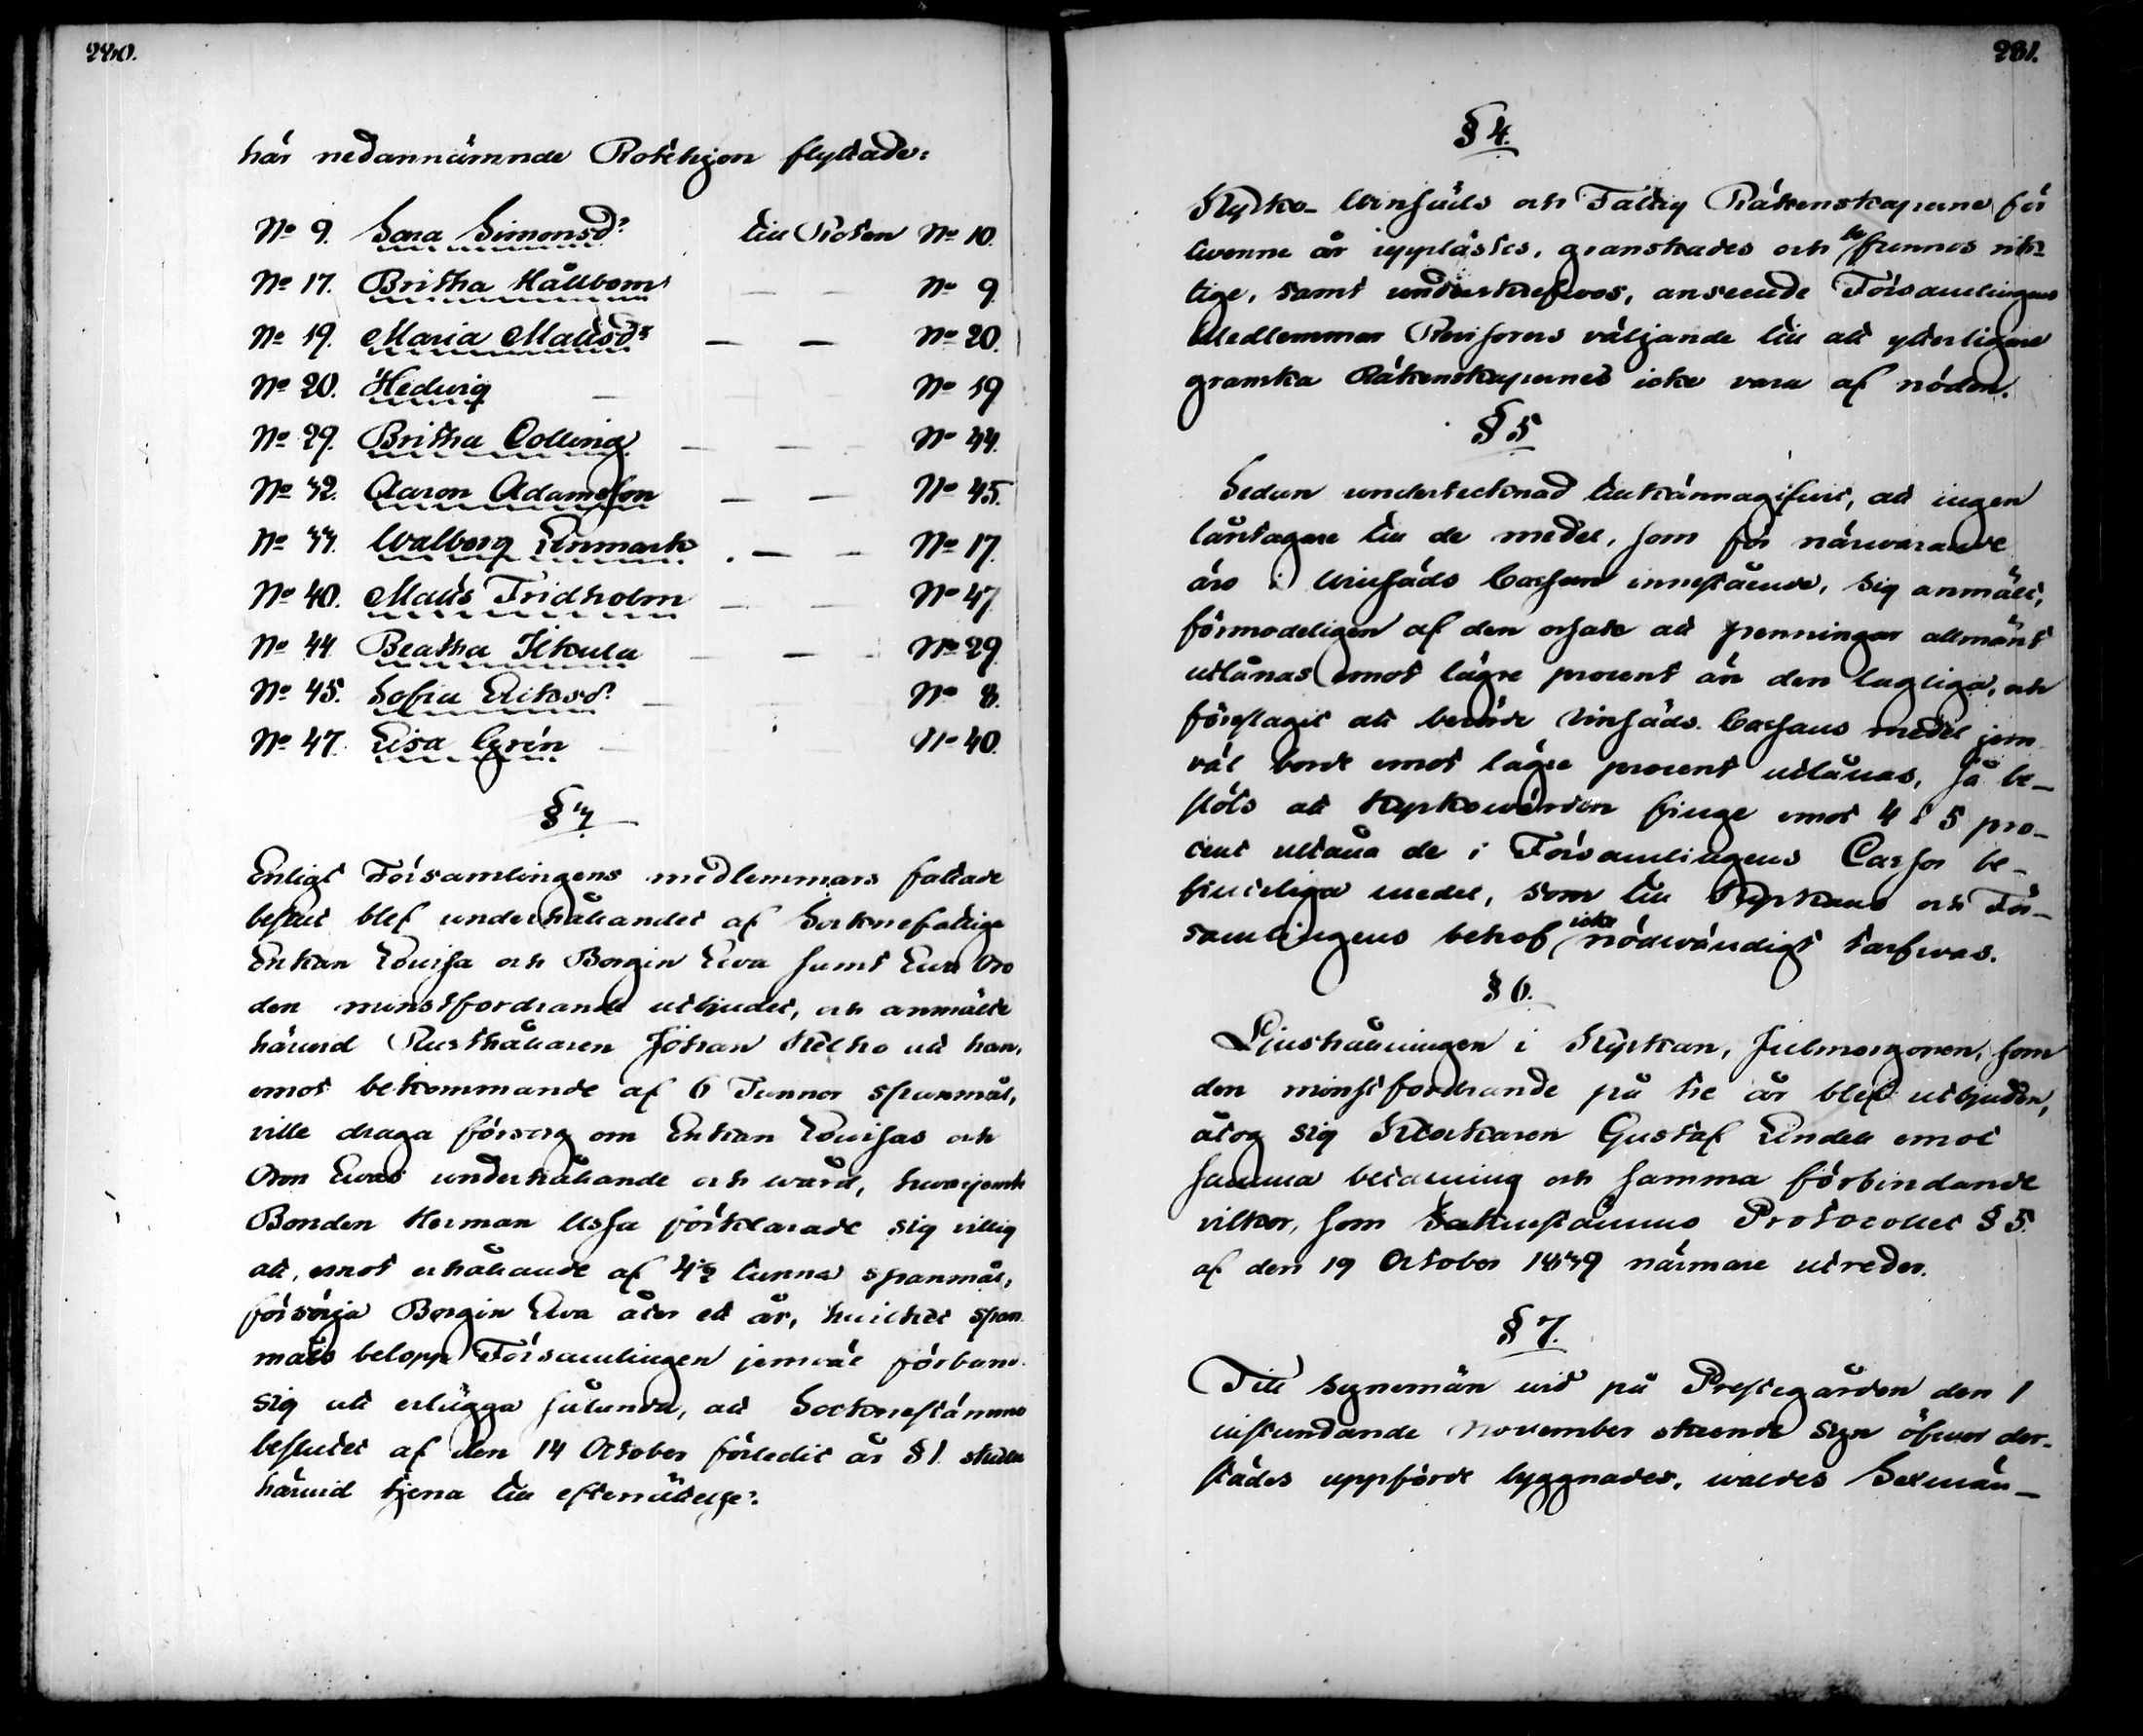 280.
här nedannämnde Rotehjon flyttade:
No 9. Sara Simonsdr till Roten No 10.
No 17. Britha Hållbom — — No 9.
No 19. Maria Mattsdr — — No 20.
No 20. Hedvig — — No 19
No 29. Britha Colling — — No 44.
No 32. Aaron Adamsson — — No 45.
No 33. Walborg Finmark — — No 17.
No 40. Matts Fridholm — — No 47
No 44 Beatha Ilkula — — No 29
No 45. Sofia Eriksdr — No 8.
No 47. Lisa Grén — No 40.
§ 3
Enligt Församlingens medlemmars fattade
beslut blef underhållandet af Socknefattige
Enkan Lovisa och Borgin Eva samt Eva Orn
den minstfordrande utbjudet, och anmälte
härvid Rusthållaren Johan Kelho att han,
emot bekommande af 6 Tunnor spanmål,
ville draga försorg om Enkan Lovisas och
Orn Evas underhållande och wård, hwarjemte
Bonden Herman Ussa förklarade sig villig
att, emot erhållande af 4 1/2 tunna spanmål,
försörja Borgin Eva åter ett år, hvilket span
måls belopp Församlingen jemväl förband
sig att erlägga sålunda, att Socknestämmo
beslutet af den 14 October förledit år § 1. skulle
härvid tjena till efterrättelse.
281.
§ 4.
Kyrko- Winsäds och Fattig Räkenskaperne för
tvenne år upplästes, granskades och befunnos rik-
tige, samt underskrefvos, anseende Församlingens
Medlemmar Revisorers väljande till att ytterligare
granska Räkenskaperne icke vara af nöden.
§ 5
Sedan undertecknad tillkännagifvit, att ingen
låntagare till de medel, som för närvarande
äro i Winsäds Cassan innestående, sig anmält,
förmodeligen af den orsak att penningar allmänt
utlånas emot lägre procent än den lagliga, och
föreslagit att berörde Winsäds Cassans medel jem
väl borde emot lägre procent utlånas, så be-
slöts att Kyrkowärden finge emot 4 à 5 pro-
cent utlåna de i Församlingens Cassor be-
fintliga medel, som till Kyrkans och För-
samlingens behof icke nödvändigt tarfvas.
§ 6.
Ljushållningen i Kyrkan, Julmorgonen, som
den minstfordrande på tre år blef utbjuden,
åtog sig Klockaren Gustaf Lindell emot
samma betalning och samma förbindande
vilkor, som Socknestämmo Protocollet § 5.
af den 19 October 1839 närmare utreder.
§ 7.
Till synemän vid på Prestegården den 1
instundande November skeende syn öfver der-
städes uppförde byggnader, valdes Sexmän-